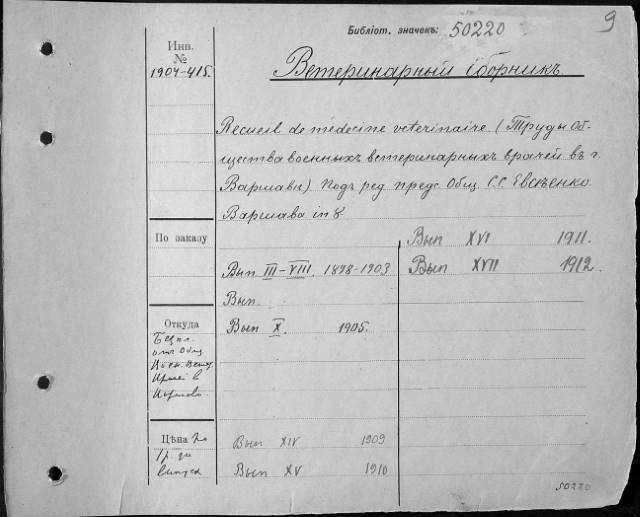 Библіот. значекъ: 50220
9
Инв.
№
1904-415.
Ветеринарный сборникъ.
Recueil de médecine vétérinaire. (Труды Об-
щества военныхъ ветеринарныхъ врачей въ г.
Варшавѣ) Подъ ред. предс. Общ. С.С. Евсѣенко.
Варшава in 8°
По заказу
Вып XVI 1911.
Вып III-VIII. 1898-1903
Вып XVII 1912.
Вып.
Откуда
Вып X. 1905.
Безпл.
отъ Общ.
Воен. Вет.
Врачей в
Цѣна
Вып XIV 1909
1 р. за
выпуск
Вып XV 1910
50220